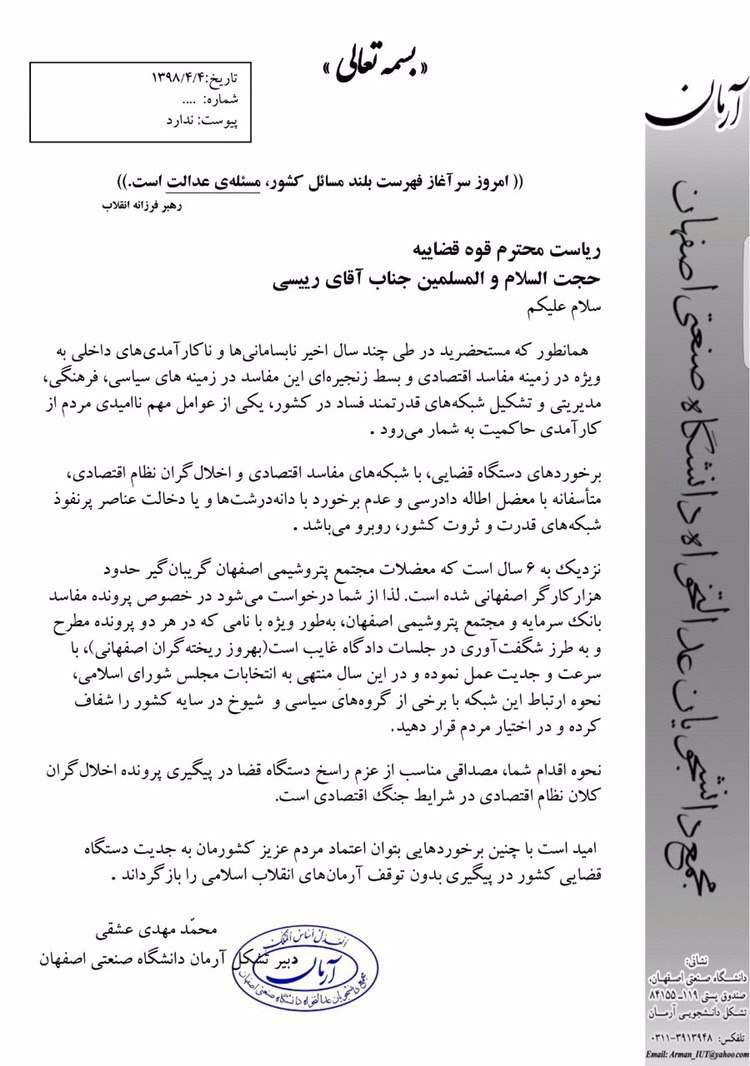 « بسمه تعالی »
تاریخ:۱۳۹۸/۴/۴
شماره: ....
پیوست: ندارد
(( امروز سرآغاز فهرست بلند مسائل کشور، مسئله‌ی عدالت است.))
رهبر فرزانه انقلاب
ریاست محترم قوه قضاییه
حجت السلام و المسلمین جناب آقای رییسی
سلام علیکم
همانطور که مستحضرید در طی چند سال اخیر نابسامانی‌ها و ناکارآمدی‌های داخلی به
ویژه در زمینه مفاسد اقتصادی و بسط زنجیره‌ای این مفاسد در زمینه های سیاسی، فرهنگی،
مدیریتی و تشکیل شبکه‌های قدرتمند فساد در کشور، یکی از عوامل مهم ناامیدی مردم از
کارآمدی حاکمیت به شمار می‌رود .
برخوردهای دستگاه قضایی، با شبکه‌های مفاسد اقتصادی و اخلال‌گران نظام اقتصادی،
متأسفانه با معضل اطاله دادرسی و عدم برخورد با دانه‌درشت‌ها و یا دخالت عناصر پرنفوذ
شبکه‌های قدرت و ثروت کشور، روبرو می‌باشد .
نزدیک به ۶ سال است که معضلات مجتمع پتروشیمی اصفهان گریبان‌گیر حدود
هزارکارگر اصفهانی شده است. لذا از شما درخواست می‌شود در خصوص پرونده مفاسد
بانک سرمایه و مجتمع پتروشیمی اصفهان، به‌طور ویژه با نامی که در هر دو پرونده مطرح
و به طرز شگفت‌آوری در جلسات دادگاه غایب است(بهروز ریخته‌گران اصفهانی)، با
سرعت و جدیت عمل نموده و در این سال منتهی به انتخابات مجلس شورای اسلامی،
نحوه ارتباط این شبکه با برخی از گروه‌های سیاسی و شیوخ در سایه کشور را شفاف
کرده و در اختیار مردم قرار دهید.
نحوه اقدام شما، مصداقی مناسب از عزم راسخ دستگاه قضا در پیگیری پرونده اخلال‌گران
کلان نظام اقتصادی در شرایط جنگ اقتصادی است.
امید است با چنین برخوردهایی بتوان اعتماد مردم عزیز کشورمان به جدیت دستگاه
قضایی کشور در پیگیری بدون توقف آرمان‌های انقلاب اسلامی را بازگرداند .
محمّد مهدی عشقی
دبیر تشکل آرمان دانشگاه صنعتی اصفهان
العدل أساس الملک
آرمان
مجمع دانشجویان عدالتخواه دانشگاه صنعتی اصفهان
آرمان
مجمع دانشجویان عدالتخواه دانشگاه صنعتی اصفهان
نشانی:
دانشگاه صنعتی اصفهان،
صندوق پستی ۱۱۹ـ۸۴۱۵۵
تشکل دانشجویی آرمـان
تلفکس: ۳۹۱۳۹۴۸-۰۳۱۱
Email: Arman_IUT@yahoo.com